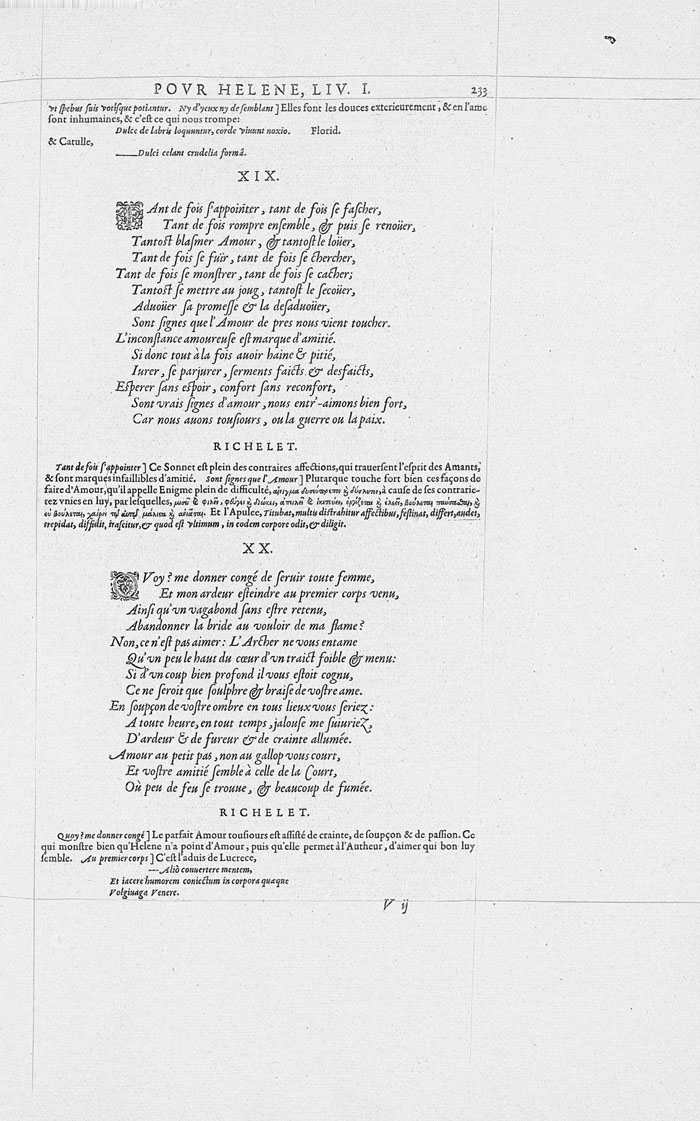 POVR HELENE, LIV. I. 233
vt spebus suis votisque potiantur. Ny d'yeux ny de semblant ] Elles sont les douces exterieurement, & en l'ame
sont inhumaines, & c'est ce qui nous trompe:
Dulce de labris loquuntur, corde viuunt noxio. Florid.
& Catulle,
——Dulci celant crudelia formâ.
XIX.
TAnt de fois s'appointer, tant de fois se fascher,
Tant de fois rompre ensemble, & puis se renoüer,
Tantost blasmer Amour, & tantost le loüer,
Tant de fois se fuïr, tant de fois se chercher,
Tant de fois se monstrer, tant de fois se cacher;
Tantost se mettre au joug, tantost le secoüer,
Aduoüer sa promesse & la desaduoüer,
Sont signes que l'Amour de pres nous vient toucher.
L'inconstance amoureuse est marque d'amitié.
Si donc tout à la fois auoir haine & pitié,
Iurer, se parjurer, serments faicts & desfaicts,
Esperer sans espoir, confort sans reconfort,
Sont vrais signes d'amour, nous entr'-aimons bien fort,
Car nous auons tousiours, ou la guerre ou la paix.
RICHELET.
Tant de fois s'appointer ] Ce Sonnet est plein des contraires affections, qui trauersent l'esprit des Amants,
& sont marques infaillibles d'amitié. Sont signes que l'Amour ] Plutarque touche fort bien ces façons de
faire d'Amour, qu'il appelle Enigme plein de difficulté, à cause de ses contrarie-
tez vnies en luy, par lesquelles,
Et l'Apulee, Titubat, multis distrahitur affectibus, festinat, differt, audet,
trepidat, diffidit, irascitur, & quod est vltimum, in eodem corpore odit, & diligit.
XX.
QVoy? me donner congé de seruir toute femme,
Et mon ardeur esteindre au premier corps venu,
Ainsi qu'vn vagabond sans estre retenu,
Abandonner la bride au vouloir de ma flame?
Non, ce n'est pas aimer: L'Archer ne vous entame
Qu'vn peu le haut du cœur d'vn traict foible & menu:
Si d'vn coup bien profond il vous estoit cognu,
Ce ne seroit que soulphre & braise de vostre ame.
En soupçon de vostre ombre en tous lieux vous seriez:
A toute heure, en tout temps, jalouse me suiuriez,
D'ardeur & de fureur & de crainte allumée.
Amour au petit pas, non au gallop vous court,
Et vostre amitié semble à celle de la Court,
Où peu de feu se trouue, & beaucoup de fumée.
RICHELET.
Quoy? me donner congé ] Le parfait Amour tousiours est assisté de crainte, de soupçon & de passion. Ce
qui monstre bien qu'Helene n'a point d'Amour, puis qu'elle permet à l'Autheur, d'aimer qui bon luy
semble. Au premier corps ] C'est l'aduis de Lucrece,
——Aliò conuertere mentem,
Et iacere humorem coniectum in corpora quæque
Volgiuaga Venere.
V ij